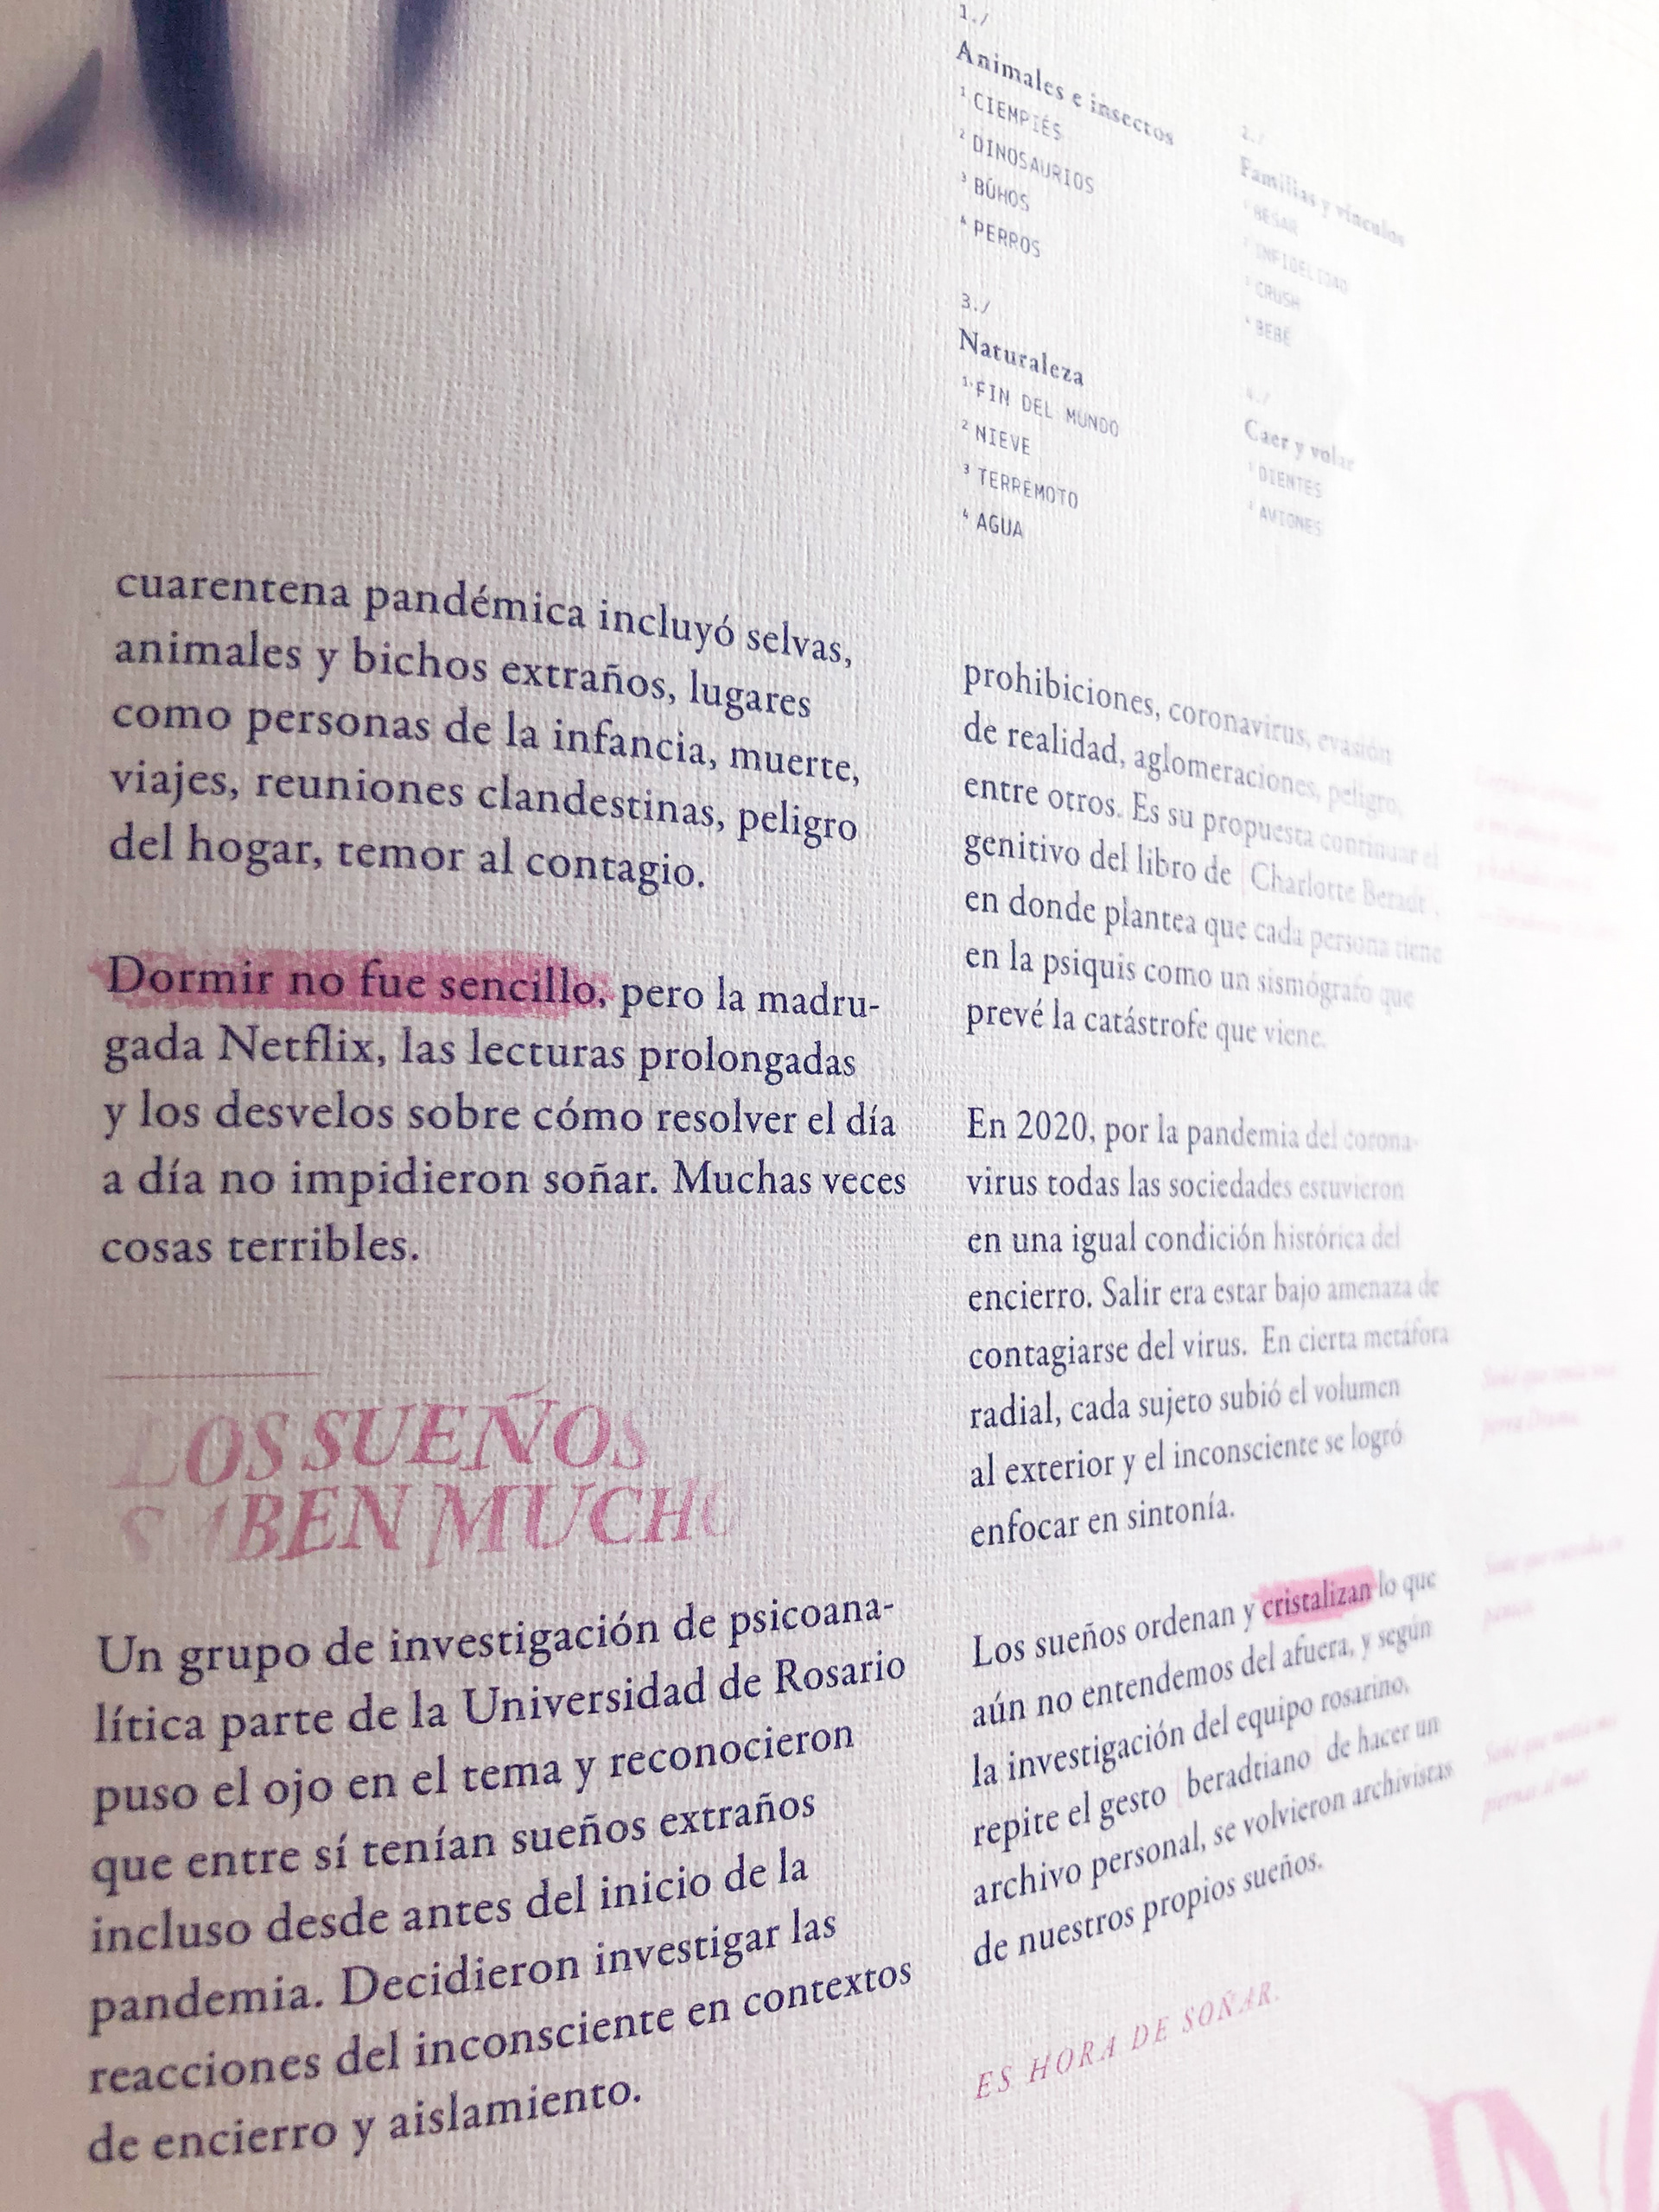 1./
Animales e insectos
1 CIEMPIÉS
2 DINOSAURIOS
3 BÚHOS
4 PERROS
2./
Familias y vínculos
1 BESAR
2 INFIDELIDAD
3 CRUSH
4 BEBÉ
3./
Naturaleza
1 FIN DEL MUNDO
2 NIEVE
3 TERREMOTO
4 AGUA
4./
Caer y volar
1 DIENTES
2 AVIONES
cuarentena pandémica incluyó selvas,
animales y bichos extraños, lugares
como personas de la infancia, muerte,
viajes, reuniones clandestinas, peligro
del hogar, temor al contagio.
Dormir no fue sencillo, pero la madru-
gada Netflix, las lecturas prolongadas
y los desvelos sobre cómo resolver el día
a día no impidieron soñar. Muchas veces
cosas terribles.
LOS SUEÑOS
SABEN MUCHO
Un grupo de investigación de psicoana-
lítica parte de la Universidad de Rosario
puso el ojo en el tema y reconocieron
que entre sí tenían sueños extraños
incluso desde antes del inicio de la
pandemia. Decidieron investigar las
reacciones del inconsciente en contextos
de encierro y aislamiento.
prohibiciones, coronavirus, evasión
de realidad, aglomeraciones, peligro,
entre otros. Es su propuesta continuar el
genitivo del libro de Charlotte Beradt,
en donde plantea que cada persona tiene
en la psiquis como un sismógrafo que
prevé la catástrofe que viene.
En 2020, por la pandemia del corona-
virus todas las sociedades estuvieron
en una igual condición histórica del
encierro. Salir era estar bajo amenaza de
contagiarse del virus. En cierta metáfora
radial, cada sujeto subió el volumen
al exterior y el inconsciente se logró
enfocar en sintonía.
Los sueños ordenan y cristalizan lo que
aún no entendemos del afuera, y según
la investigación del equipo rosarino,
repite el gesto beradtiano de hacer un
archivo personal, se volvieron archivistas
de nuestros propios sueños.
ES HORA DE SOÑAR.